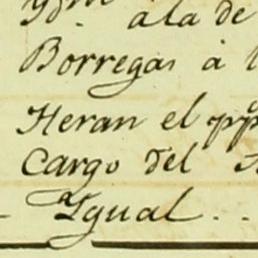 Ydm. a la de
Borregas à l
Heran el pp
Cargo del
Ygual . .